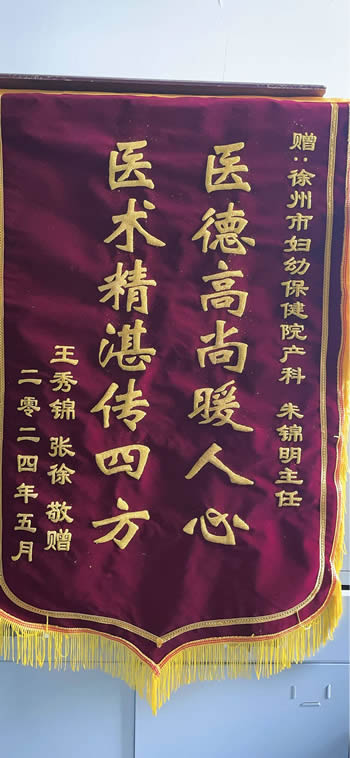 赠:徐州市妇幼保健院产科 朱锦明主任
医德高尚暖人心
医术精湛传四方
王秀锦 张徐 敬赠
二零二四年五月